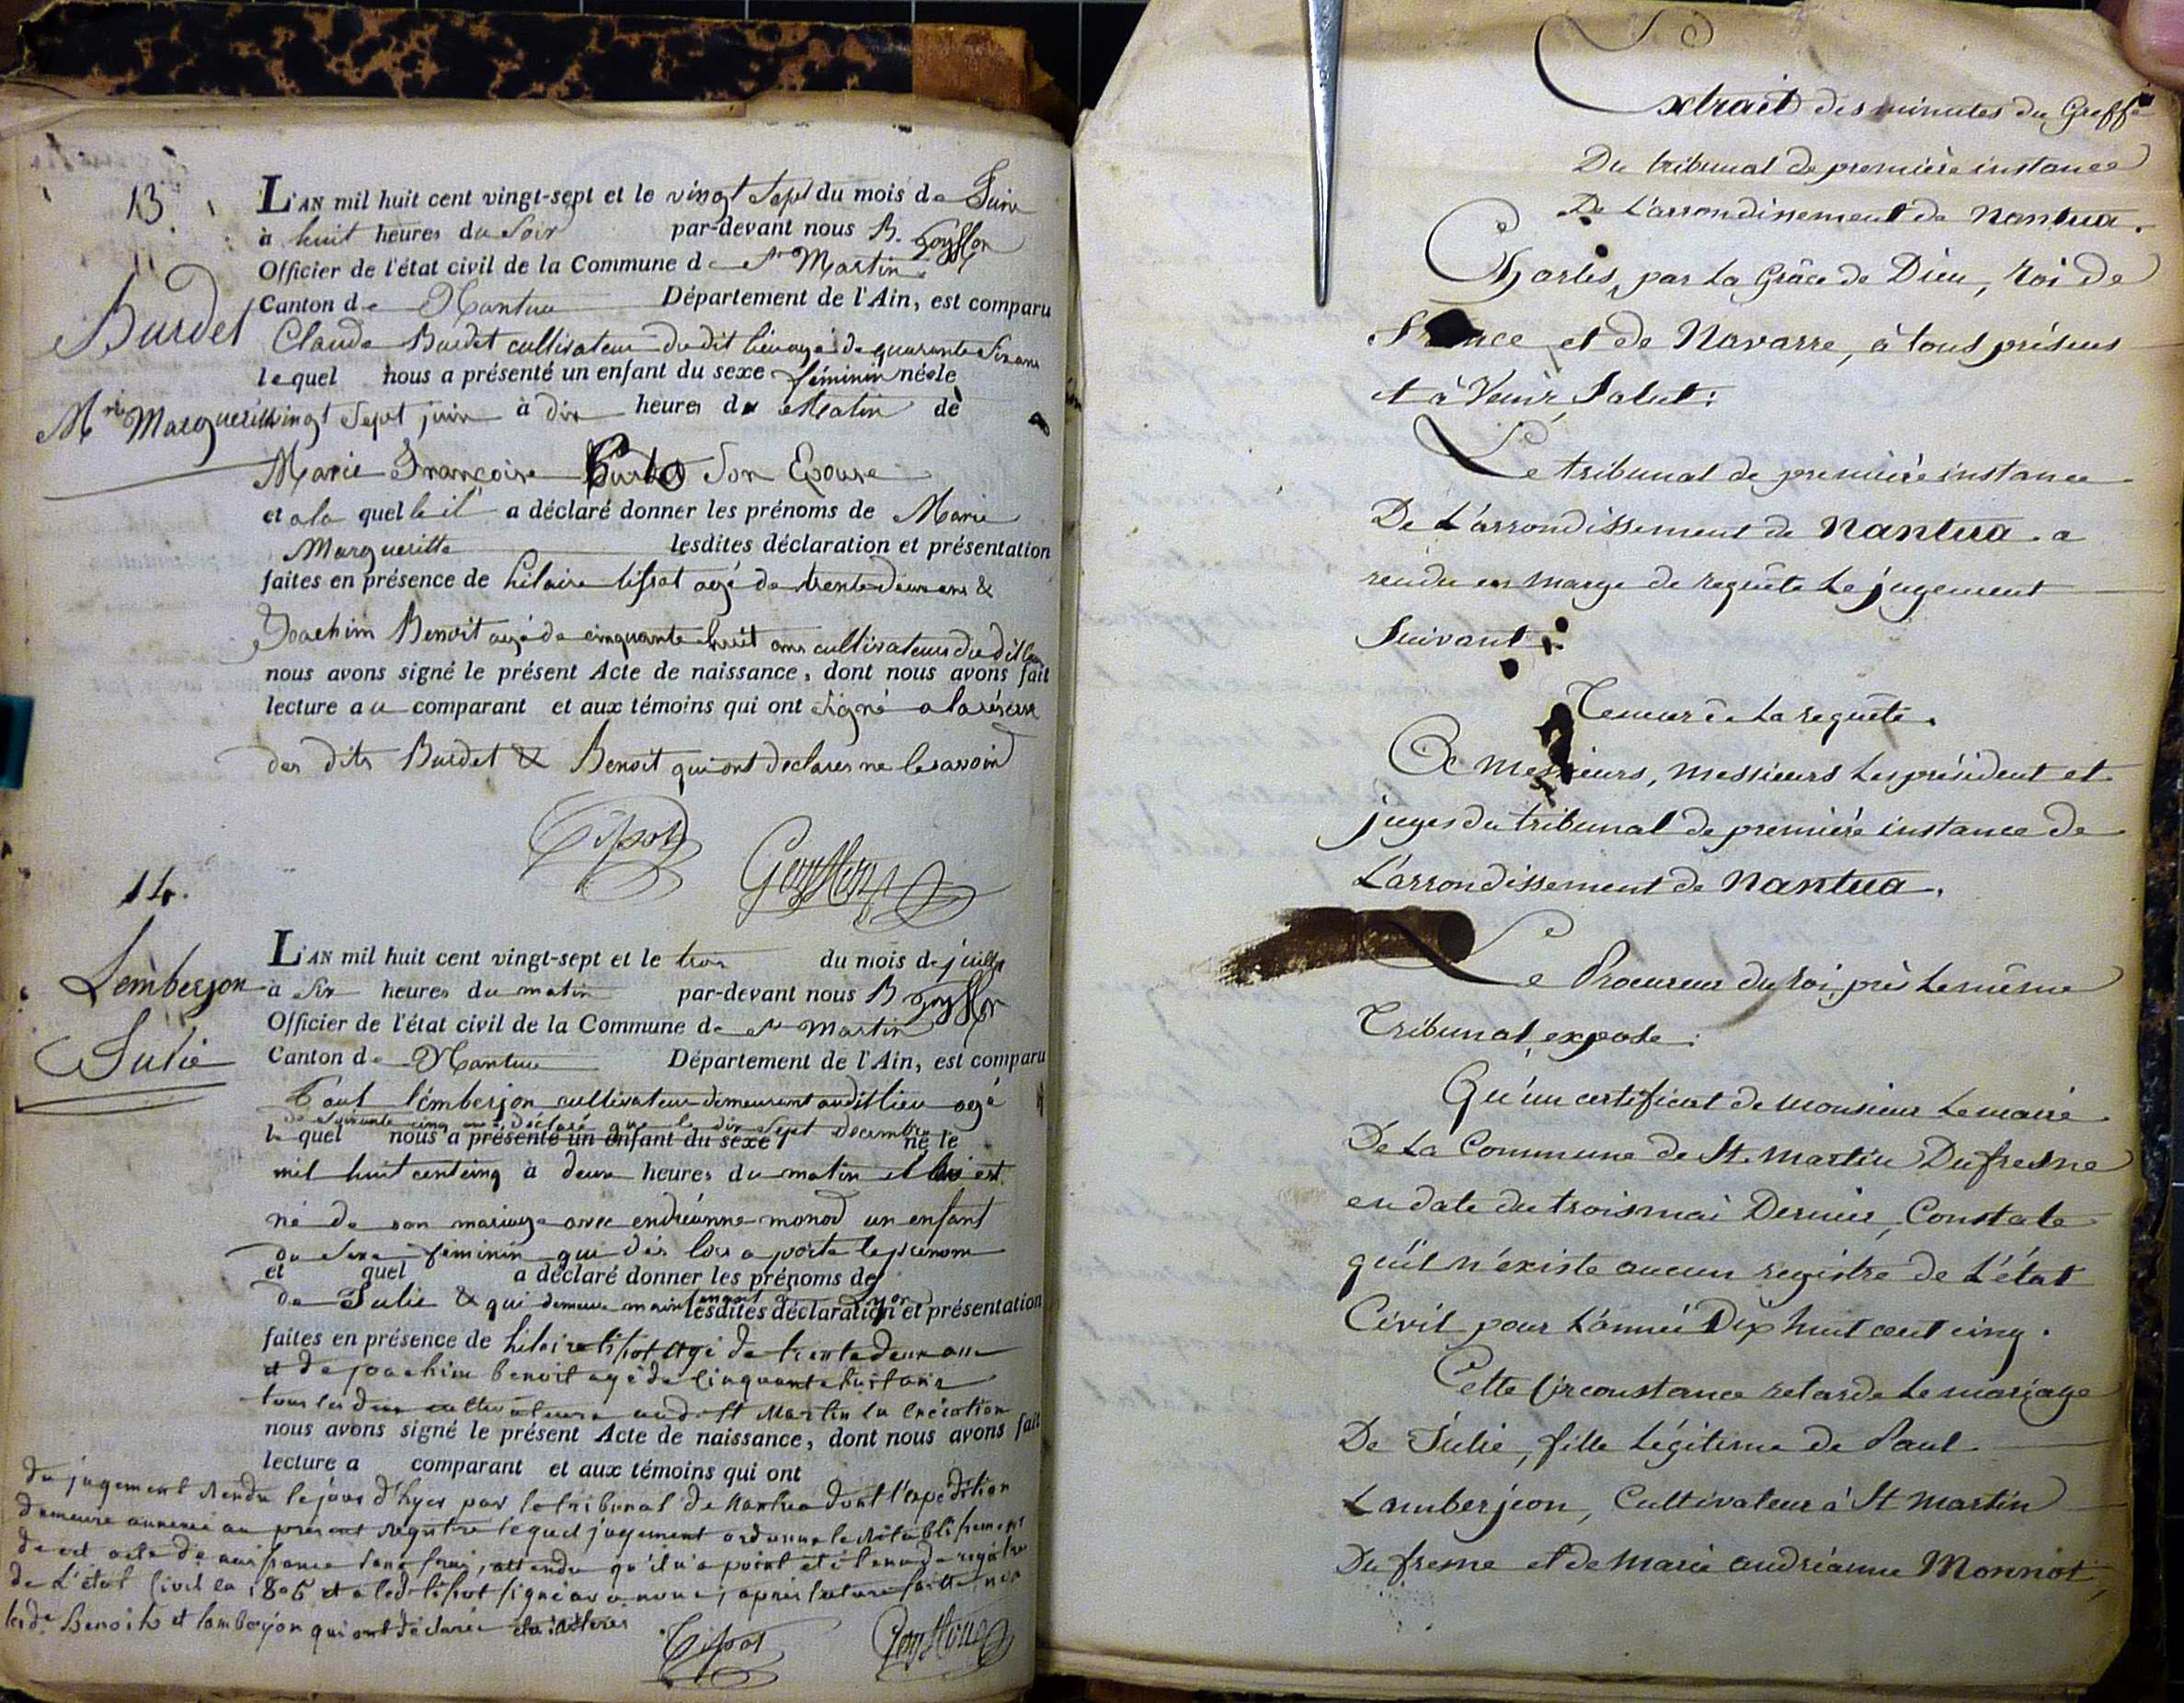 13.
Burdet
Mrie Margueritte
L'AN mil huit cent vingt-sept et le vingt sept du mois de Juin
à huit heures du Soir par-devant nous B. Goyffon
Officier de l'état civil de la Commune de St Martin
Canton de Nantua Département de l'Ain, est comparu
Claude Burdet cultivateur du dit lieu agé de quarante Six ans
lequel nous a présenté un enfant du sexe féminin née le
vingt Sept juin à dix heures du Matin de
Marie Françoise Son Epouse
et a la quelle il a déclaré donner les prénoms de Marie
Margueritte lesdites déclaration et présentation
faites en présence de hilaire tissot agé de trente deux ans &
Joachim Benoit agé de cinquante huit ans cultivateurs du dit lieu
nous avons signé le présent Acte de naissance, dont nous avons fait
lecture au comparant et aux témoins qui ont signé a la réserve
des dits Burdet & Benoit qui ont declarer ne le savoir
Goyffon
14.
Lemberjon
Julie
L'AN mil huit cent vingt-sept et le trois du mois de juillet
à Six heures du matin par-devant nous B Goyffon
Officier de l'état civil de la Commune de St Martin
Canton de Nantua Département de l'Ain, est comparu
Paul lemberjon cultivateur demeurant audit lieu agé
de Soixante cinq ans a déclaré que le dix Sept decembre
le quel nous a présenté un enfant du sexe né le
mil huit cent cinq à deux heures du matin il lui est
né de son mariage avec endréanne monod un enfant
du Sexe féminin qui dès lors a porté le prenom
et quel a déclaré donner les prénoms de
de Julie & qui demeure maintenant a Lyon
lesdites déclaration et présentation
faites en présence de hilaire tissot agé de trente deux ans
et de joachim benoit agé de cinquante huit ans
tous les deux cultivateurs aud. St Martin en Exécution
nous avons signé le présent Acte de naissance, dont nous avons fait
lecture a comparant et aux témoins qui ont
du jugement Rendu le jour d'hyer par le tribunal de Nantua dont l'expedition
demeure annexée au présent registre lequel jugement ordonne le Rétablissement
de cet acte de naissance sans frais, attendu qu'il n'a point été tenu de registre
de L'état Civil en 1805 et a led. tissot signé avec nous, après lecture faitte non
lesd. Benoit et lamberjon qui ont déclaré être illiterés
Goyffon
Extrait des minutes du Greffe
Du tribunal de première instance
De L'arrondissement de Nantua.
Charles, par La Grâce de Dieu, Roi de
France et de Navarre, à tous présens
et à Venir, Salut:
Le tribunal de première instance
De L'arrondissement de Nantua. a
rendu en marge de requête Le jugement
Suivant:
Teneur de La requête.
A messieurs, messieurs Les président et
juges du tribunal de première instance de
L'arrondissement de Nantua.
Le Procureur du Roi, près Le même
Tribunal, expose:
Qu'un certificat de monsieur Le maire
De La Commune de St. Martin Dufresne
en date du trois mai Dernier, Constate
qu'il n'éxiste aucun registre de L'état
Civil pour L'année Dix huit cent cinq.
Cette Circonstance retarde Le mariage
De Julie, fille Légitime de Paul
Lamberjeon, Cultivateur à St Martin
Du fresne et de Marie andréanne Monnot,